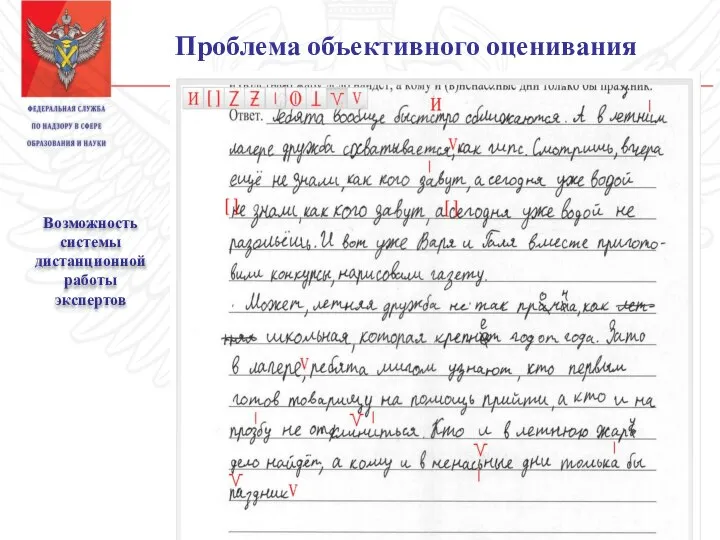 Проблема объективного оценивания
ФЕДЕРАЛЬНАЯ СЛУЖБА
ПО НАДЗОРУ В СФЕРЕ
ОБРАЗОВАНИЯ И НАУКИ
Возможность
системы
дистанционной
работы
экспертов
найдёт, а кому и (в)ненас?ные дни только бы пра?ник.
И [ ] Z Z I O ⊥ V V
И I
Ответ. Ребята вообще быстстро сближаются. А в летним
лагере дружба схватывается, как гипс. Смотришь, вчера
V
I
ещё не знали, как кого завут, а сегодня уже водой
[ ] [ ]
не знали, как кого завут, а сегодня уже водой не
разольёшь. И вот уже Варя и Галя вместе пригото-
вили конкурсы, нарисовали газету.
Может, летняя дружба не так прочна, как лет-
няя школьная, которая крепнет год от года. Зато
V
в лагере, ребята мигом узнают, кто первым
готов товарищу на помощь прийти, а кто и на
I V I
прозбу не откликниться. Кто и в летнюю жару
V I
дело найдёт, а кому и в ненасьные дни толька бы
V I
паздник V